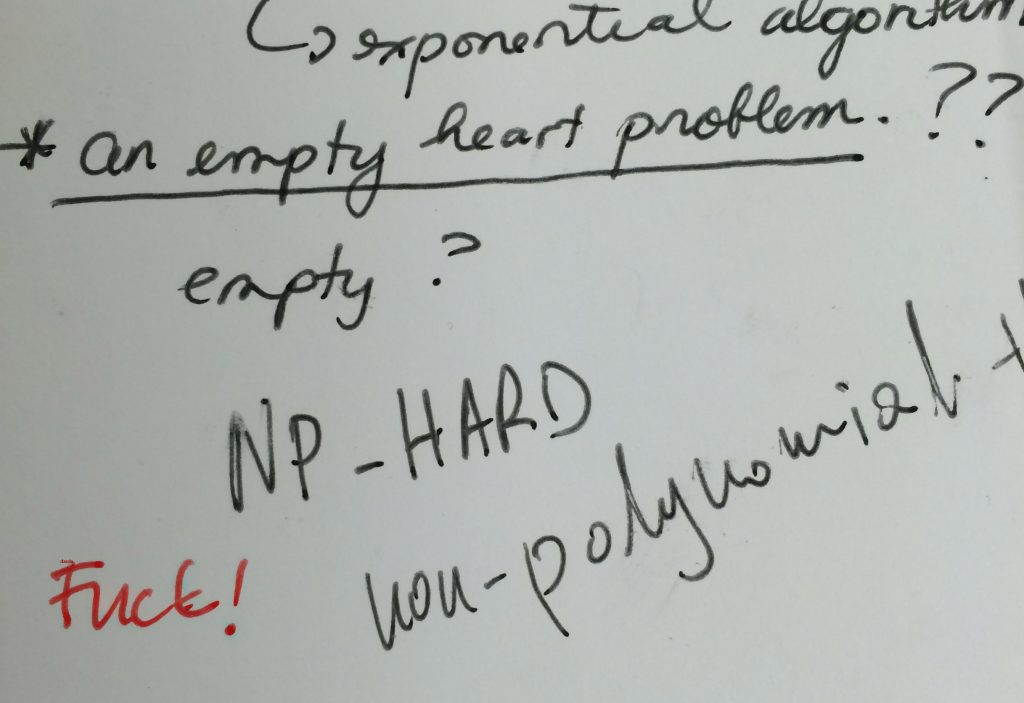 ↳ exponential algorithm
* an empty heart problem. ??
empty ?
NP-HARD
non-polynomial t
Fuck!